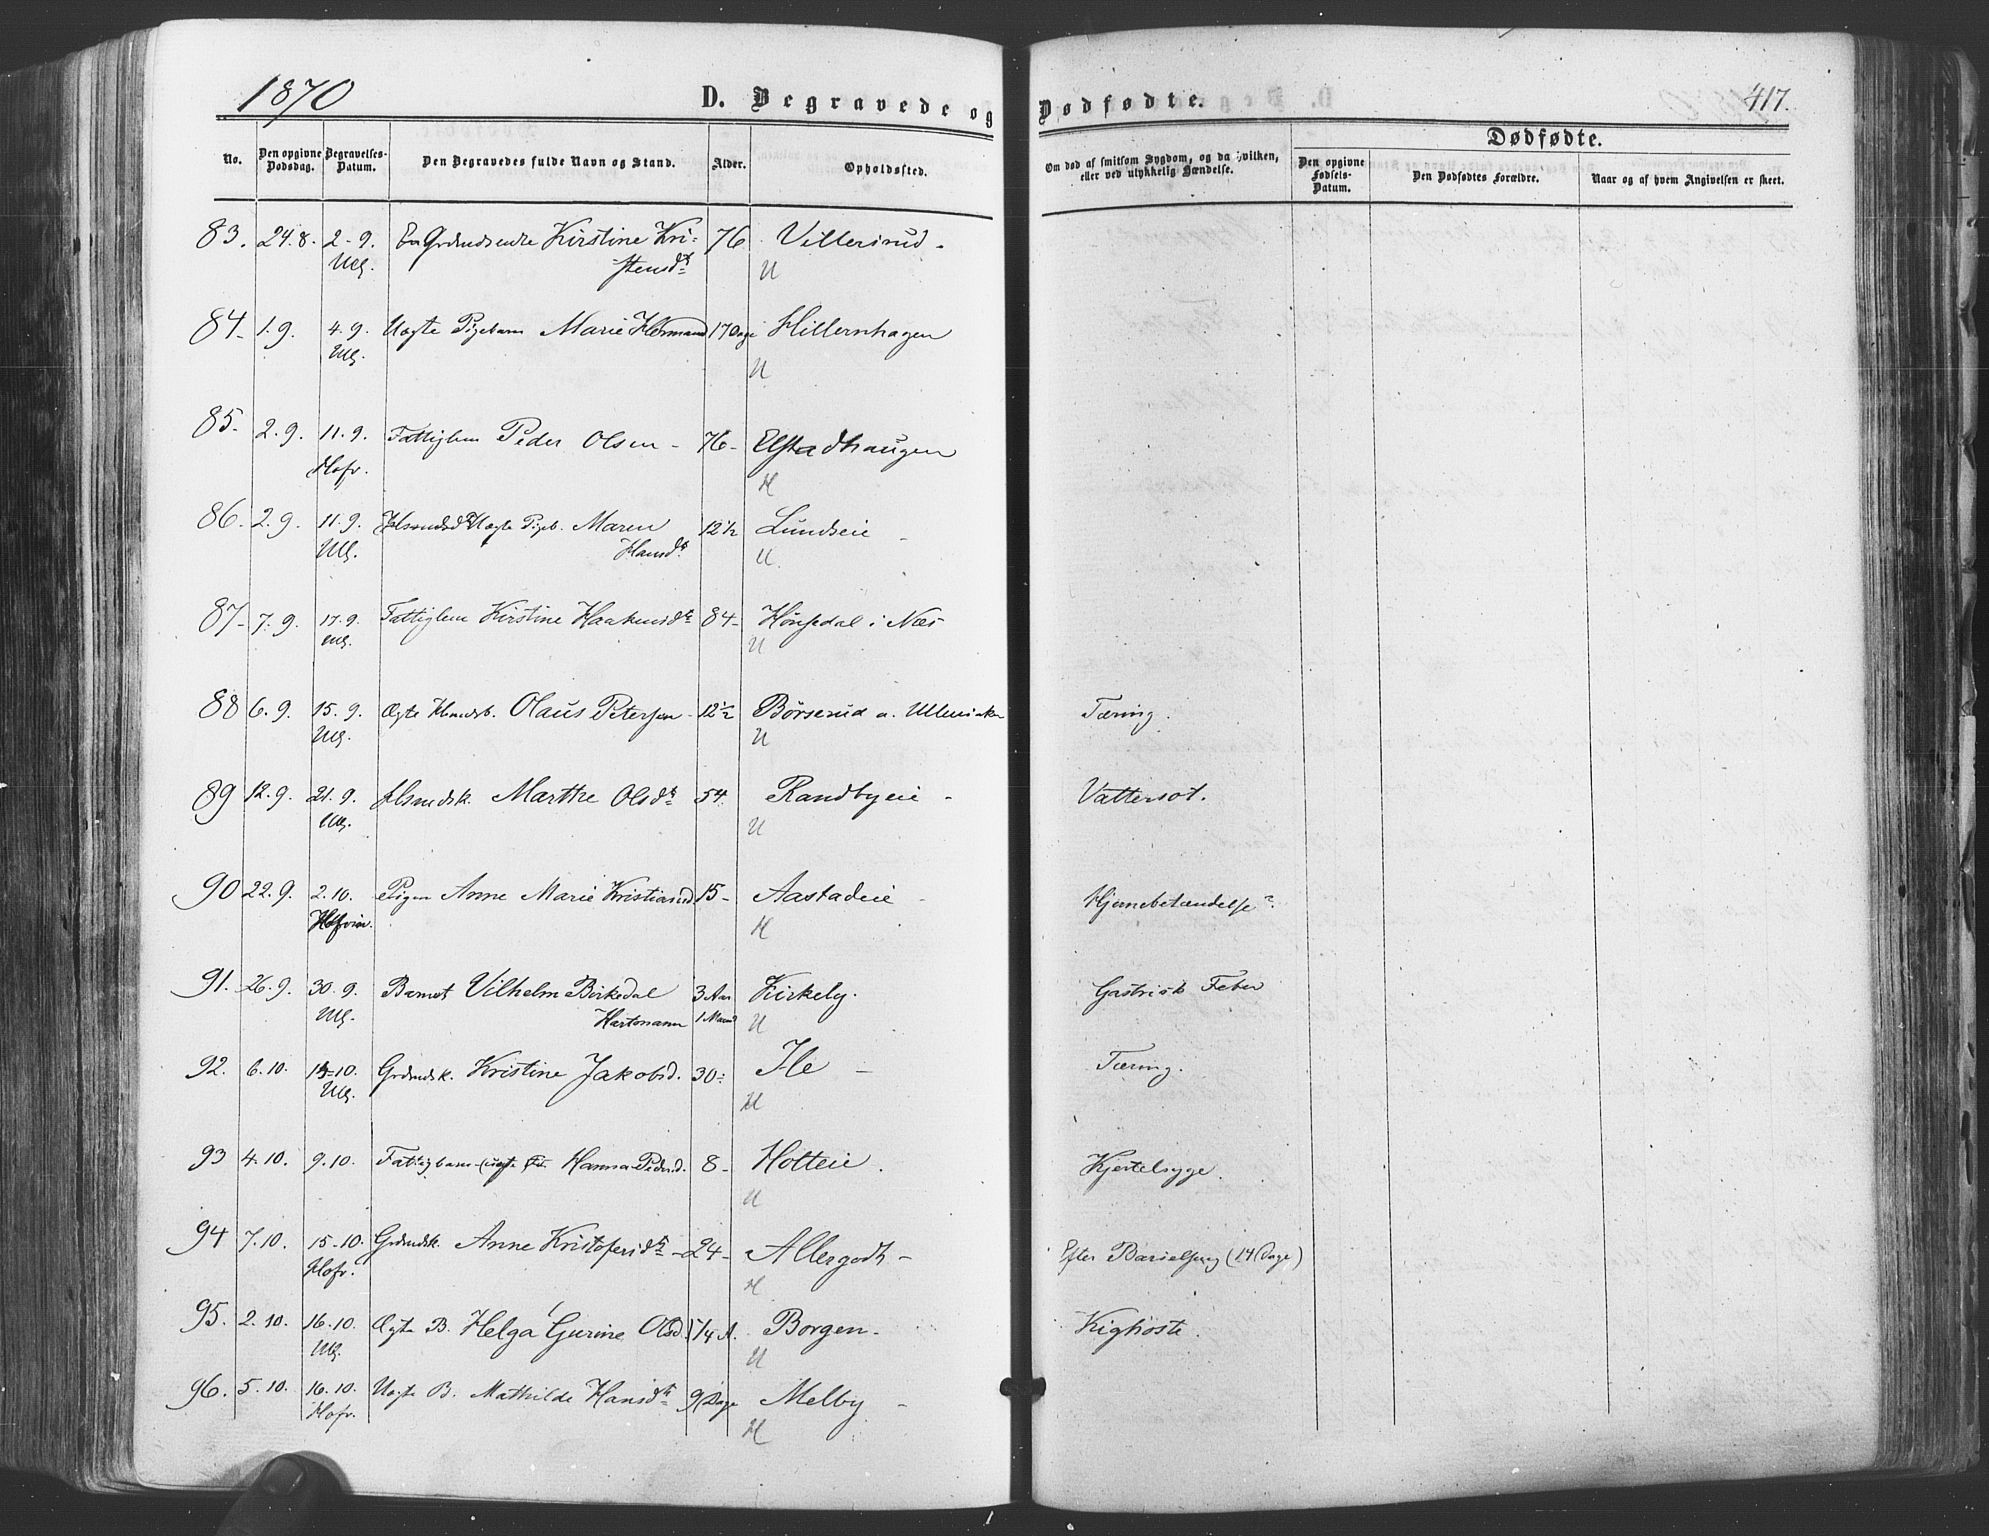 1870
D. Begravede og Dødfødte.
417.
No.
Den opgivne Dødsdag.
Begravelses-Datum.
Den Begravedes fulde Navn og Stand.
Alder.
Opholdssted.
Om død af smitsom Sygdom, og da hvilken,
eller ved ulykkelig Hændelse.
Dødfødte.
Den opgivne Fødsels-Datum.
Den Dødfødtes Forældre.
Naar og af hvem Angivelsen er skeet.
83. 24.8. 2-9. Kirstine Kri- 76 Villersrud.
Ull. stensdr U
84. 1.9. 4.9. Uægte Pigebarn Marie Hermansd 17 Dage Hillernhagen
Ull. U
85. 2.9. 11.9. Fattiglem Peder Olsen - 76- Elstadhaugen
Hofv. H
86. 2.9. 11.9. Uægte Pigeb. Maren 12 1/2 Lundseie -
Ull. Hansdr. U
87- 7.9. 17.9. Fattiglem Kirstine Haakensdr 84- Hönsedal i Næs
Ull. U
88 6.9. 15.9. Ægte Huusmdsb. Olaus Petersen - 12 1/2 Börserud a. Ullensaker Tæring.
Ull. U
89 12.9. 21.9. Marthe Olsdr 54. Randbyeie - Vattersot.
Ull. U
90 22.9. 2.10. Pigen Anne Marie Kristiansd 15- Aastadeie - Hjernebetændelse?
Hofvin. H
91. 26.9. 30.9. Barnet Vilhelm Birkedal 3 Aar Kirkeby. Gastrisk Feber
Ull. Hartmann 1 Maaned U
92. 6.10. 15-10. Grdmdsk. Kristine Jakobsd. 30- Ile - Tæring.
Ull. U
93 4.10. 9.10. Fattigbarn (uægte) Hanna Pedersd. 8- Holteie. Kjertelsyge.
U
94 7.10. 15-10. Grdmdsk. Anne Kristofersdr - 24- Allergodt - Efter Barselseng (14 Dage)
Hofv. H
95. 2.10. 16.10. Ægte B. Helga Gurine Olsd. 1/4 A. Borgen. Kighoste.
Ull. U
96. 5.10. 16.10. Uægte B. Mathilde Hansdr 9 Dage Melby -
Hofv. H